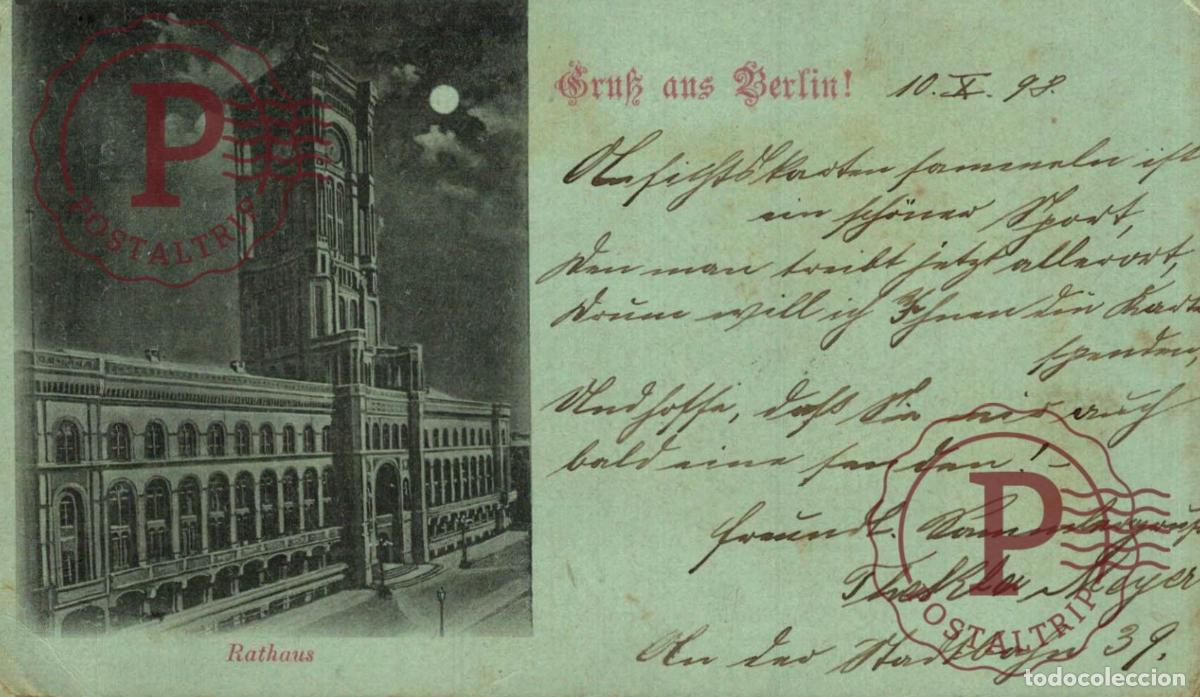 Gruß aus Berlin! 10. X. 98.
Ansichtskarten sammeln ist
ein schöner Sport,
Den man treibt jetzt allerort,
Drum will ich Ihnen die Karte
spenden,
Und hoffe, daß Sie mir auch
bald eine senden! –
Freundl. Sammlergruß
Thekla Meyer
An der Stadtbahn 39.
Rathaus
P
POSTALTRIP
P
POSTALTRIP
todocoleccion